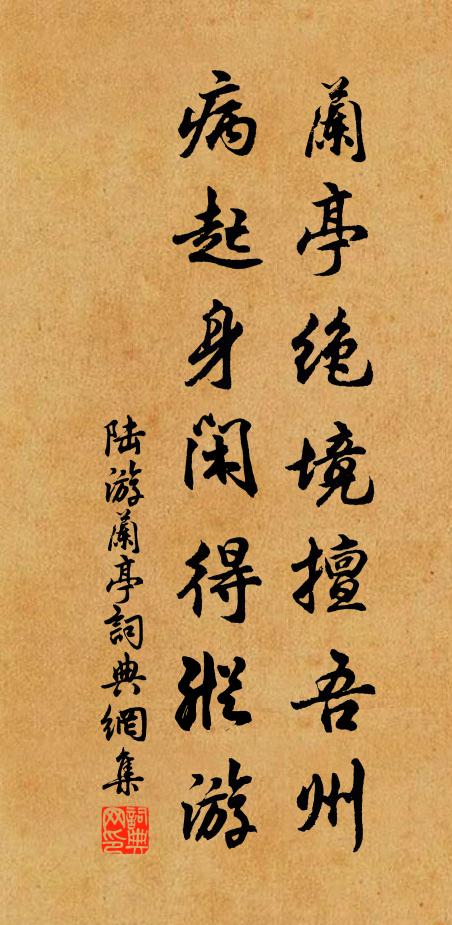 蘭亭絶境擅吾州
病起身閑得縱游
陆游蘭亭詞典網集
詞典网印